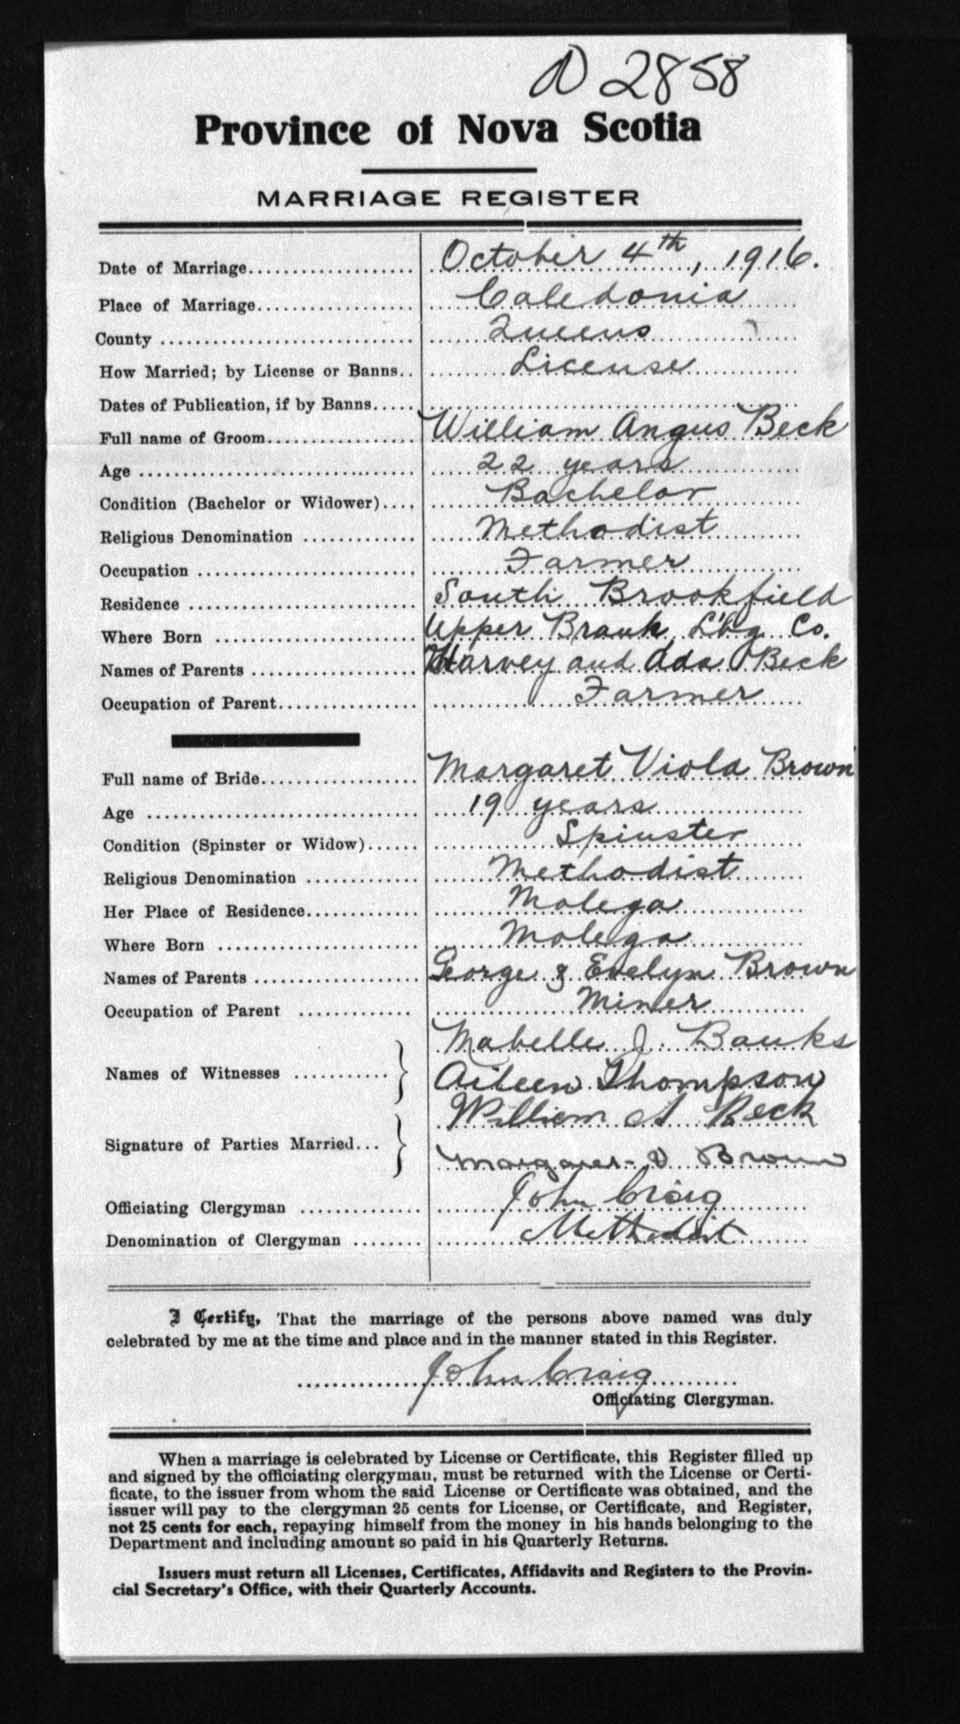 D 2858
Province of Nova Scotia
MARRIAGE REGISTER
Date of Marriage.................... October 4th, 1916.
Place of Marriage................... Caledonia
County .............................. Queens
How Married; by License or Banns.. License
Dates of Publication, if by Banns.....
Full name of Groom................. William Angus Beck
Age ................................. 22 years
Condition (Bachelor or Widower).... Bachelor
Religious Denomination ............. Methodist
Occupation .......................... Farmer
Residence ........................... South Brookfield
Where Born ........................ Upper Branh, L'bg Co.
Names of Parents ................... Harvey and Ada Beck
Occupation of Parent................ Farmer
Full name of Bride.................. Margaret Viola Brown
Age ................................. 19 years
Condition (Spinster or Widow)...... Spinster
Religious Denomination ............. Methodist
Her Place of Residence............. Molega
Where Born ........................ Molega
Names of Parents ................... George & Evelyn Brown
Occupation of Parent ............. Miner
Names of Witnesses ........... Mabelle J. Banks
Aileen Thompson
Signature of Parties Married... William A Beck
Margaret V Brown
Officiating Clergyman .............. John Craig
Denomination of Clergyman ........ Methodist
I Certify, That the marriage of the persons above named was duly
celebrated by me at the time and place and in the manner stated in this Register.
John Craig
Officiating Clergyman.
When a marriage is celebrated by License or Certificate, this Register filled up
and signed by the officiating clergyman, must be returned with the License or Certi-
ficate, to the issuer from whom the said License or Certificate was obtained, and the
issuer will pay to the clergyman 25 cents for License, or Certificate, and Register,
not 25 cents for each, repaying himself from the money in his hands belonging to the
Department and including amount so paid in his Quarterly Returns.
Issuers must return all Licenses, Certificates, Affidavits and Registers to the Provin-
cial Secretary's Office, with their Quarterly Accounts.